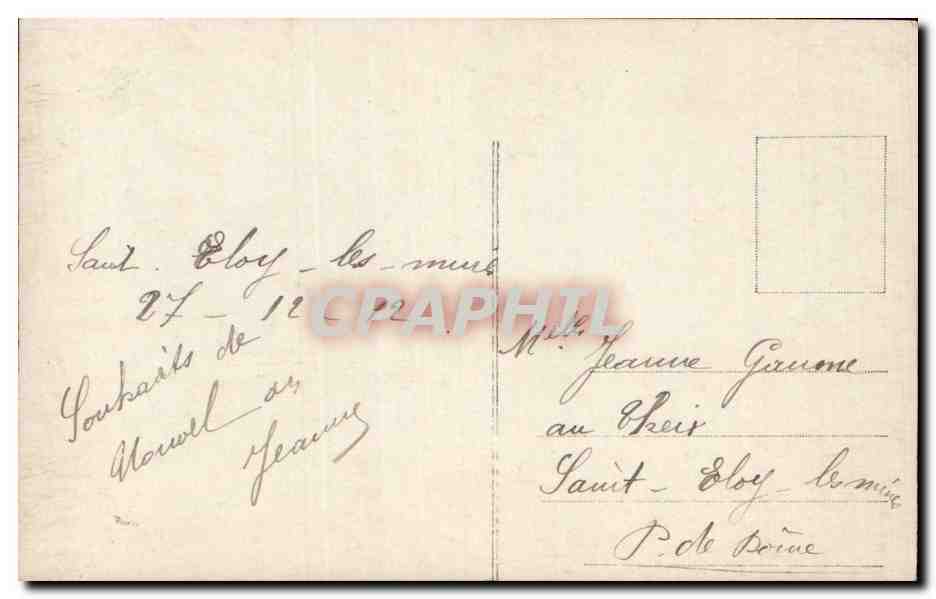 Saint. Eloy - les - mines
27 - 12 - 12.
Souhaits de
Nouvel an
Jeanne
CPAPHIL
Melle Jeanne Gaume
au Theix
Saint - Eloy - les mines
P. de Dôme